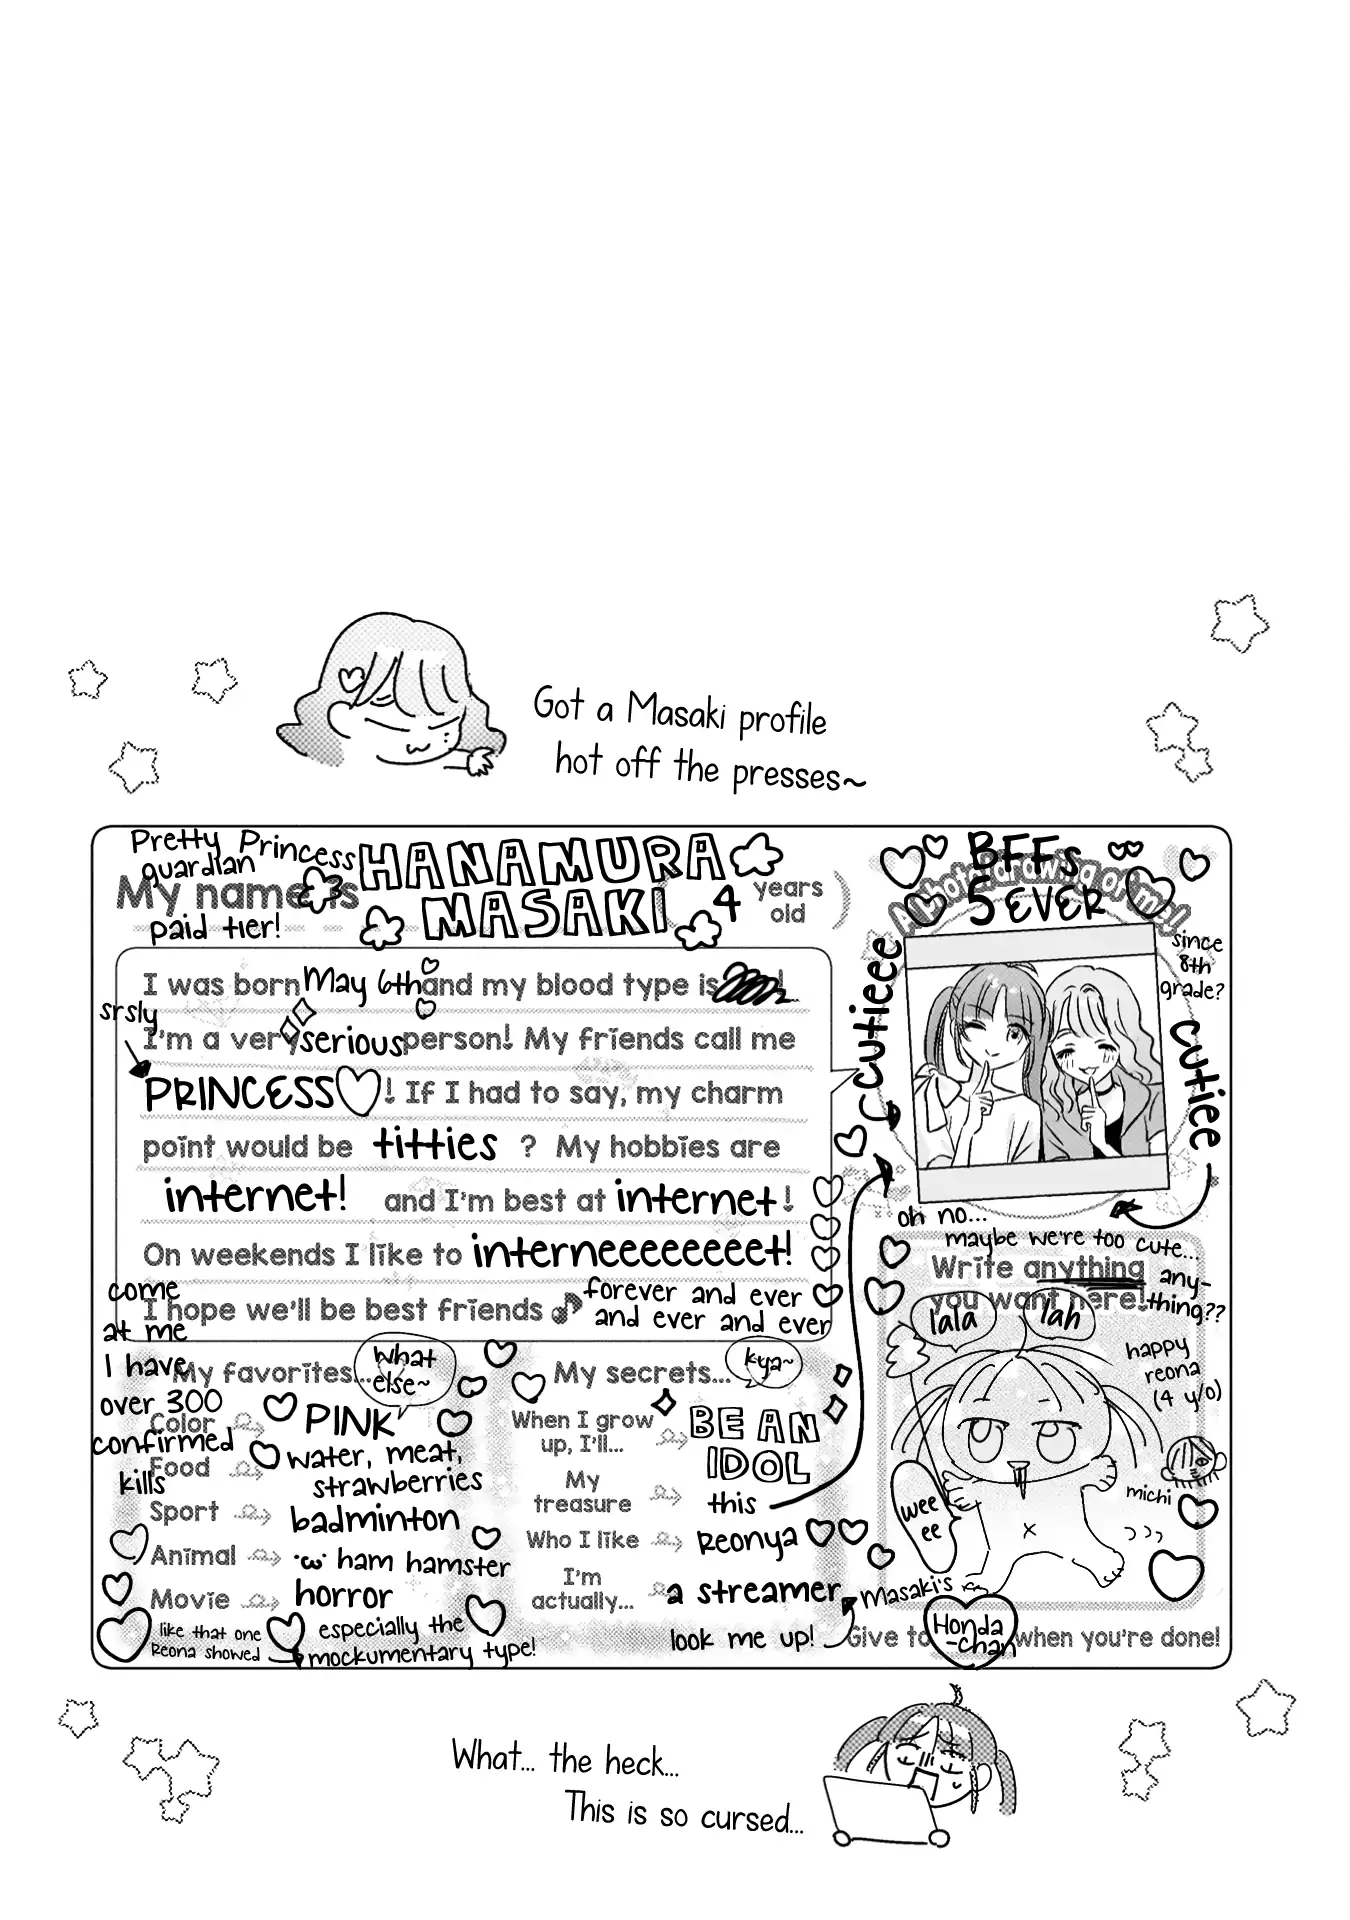 Got a Masaki profile
hot off the presses~
Pretty Princess
guardian
My name is
HANAMURA
MASAKI
( 4 years old )
paid tier!
I was born May 6th and my blood type is
srsly
I'm a very serious person! My friends call me
PRINCESS♡! If I had to say, my charm
point would be titties ? My hobbies are
internet! and I'm best at internet!
On weekends I like to interneeeeeeeet!
I hope we'll be best friends♪ forever and ever
and ever and ever
BFFs
5 EVER
A photo/drawing of me!
since
8th
grade?
cutieee
cutiee
oh no...
maybe we're too cute...
Write anything
you want here!
any-
thing??
lala
lah
happy
reona
(4 y/o)
michi
weeee
Masaki's
come
at me
I have
over 300
confirmed
kills
My favorites...
what
else~
Color PINK
Food water, meat,
strawberries
Sport badminton
Animal ·ω· ham hamster
Movie horror
like that one
Reona showed
especially the
mockumentary type!
My secrets...
kya~
When I grow
up, I'll...
BE AN
IDOL
My
treasure
this
Who I like Reonya ♡♡
I'm
actually...
a streamer
look me up!
Give to Honda-chan when you're done!
What... the heck...
This is so cursed...